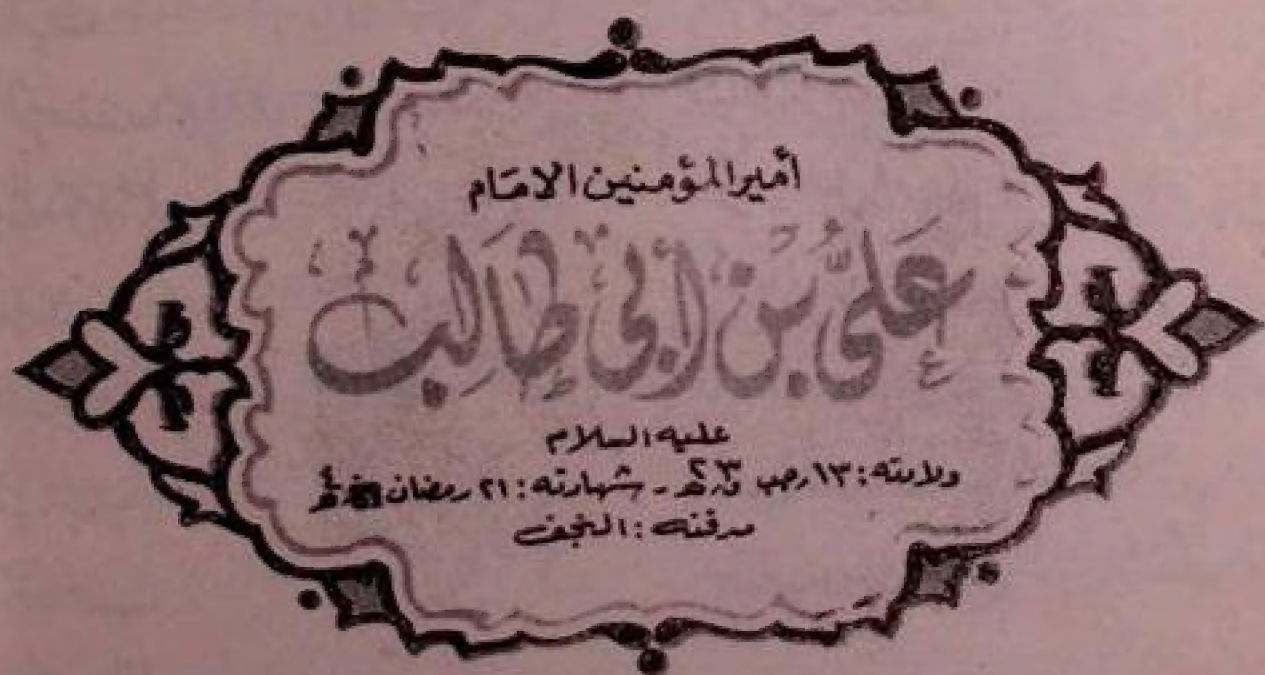 أمير المؤمنين الامام
عَلىُّ بْن أبي طَالِب
عليه السلام
ولادته : ١٣ رجب ٢٣ ق.هـ ـ شهادته : ٢١ رمضان
مدفنه : النجف